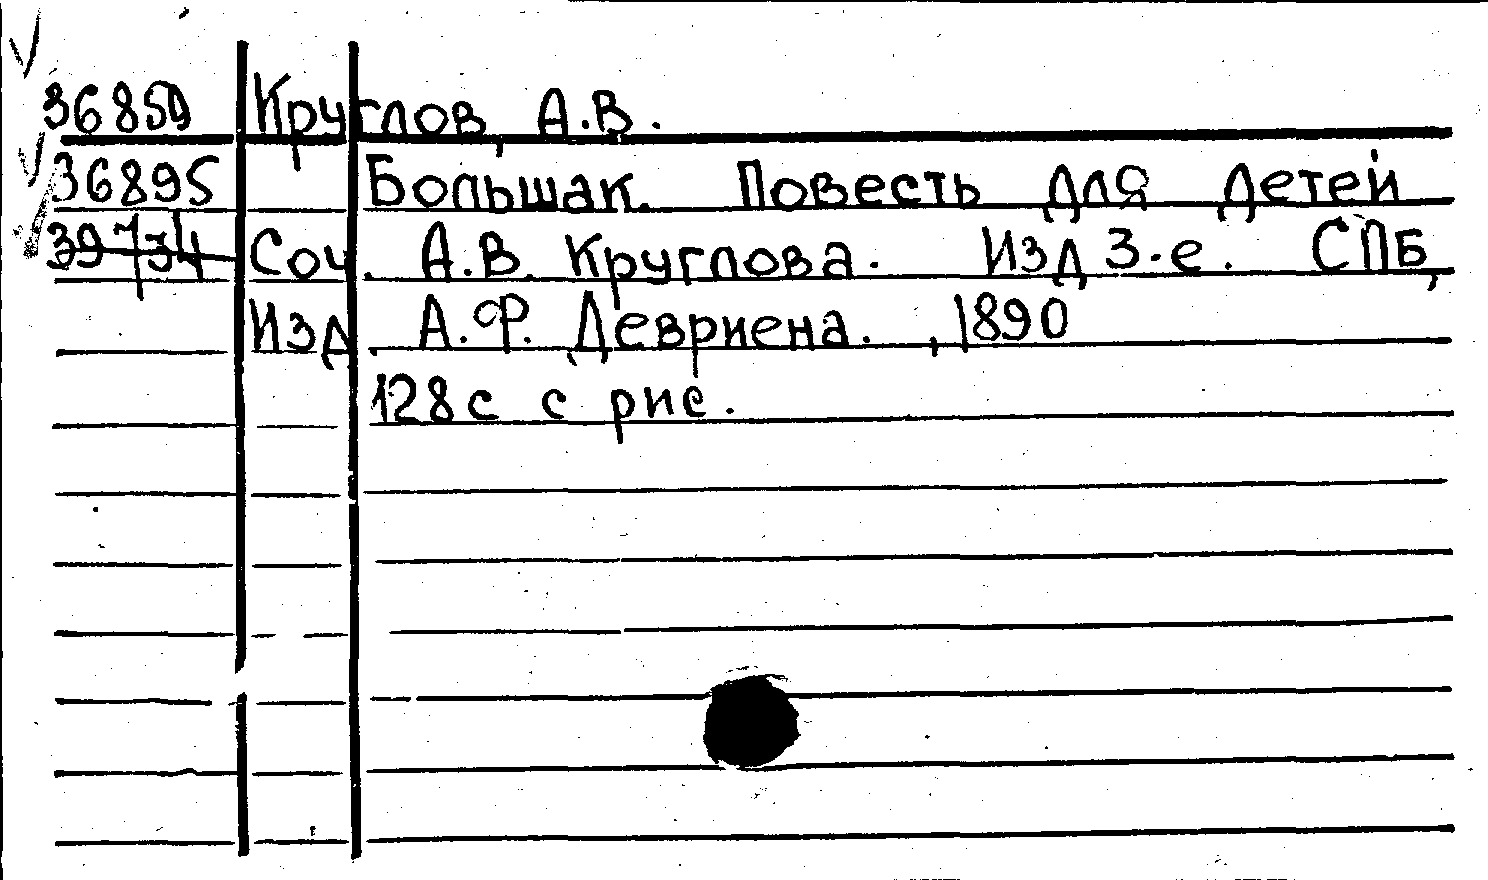 36859 Круглов, А.В.
36895 Большак. Повесть для детей
39734 Соч. А.В. Круглова. Изд 3-е. СПБ,
Изд. А.Ф. Девриена. , 1890
128с с рис.